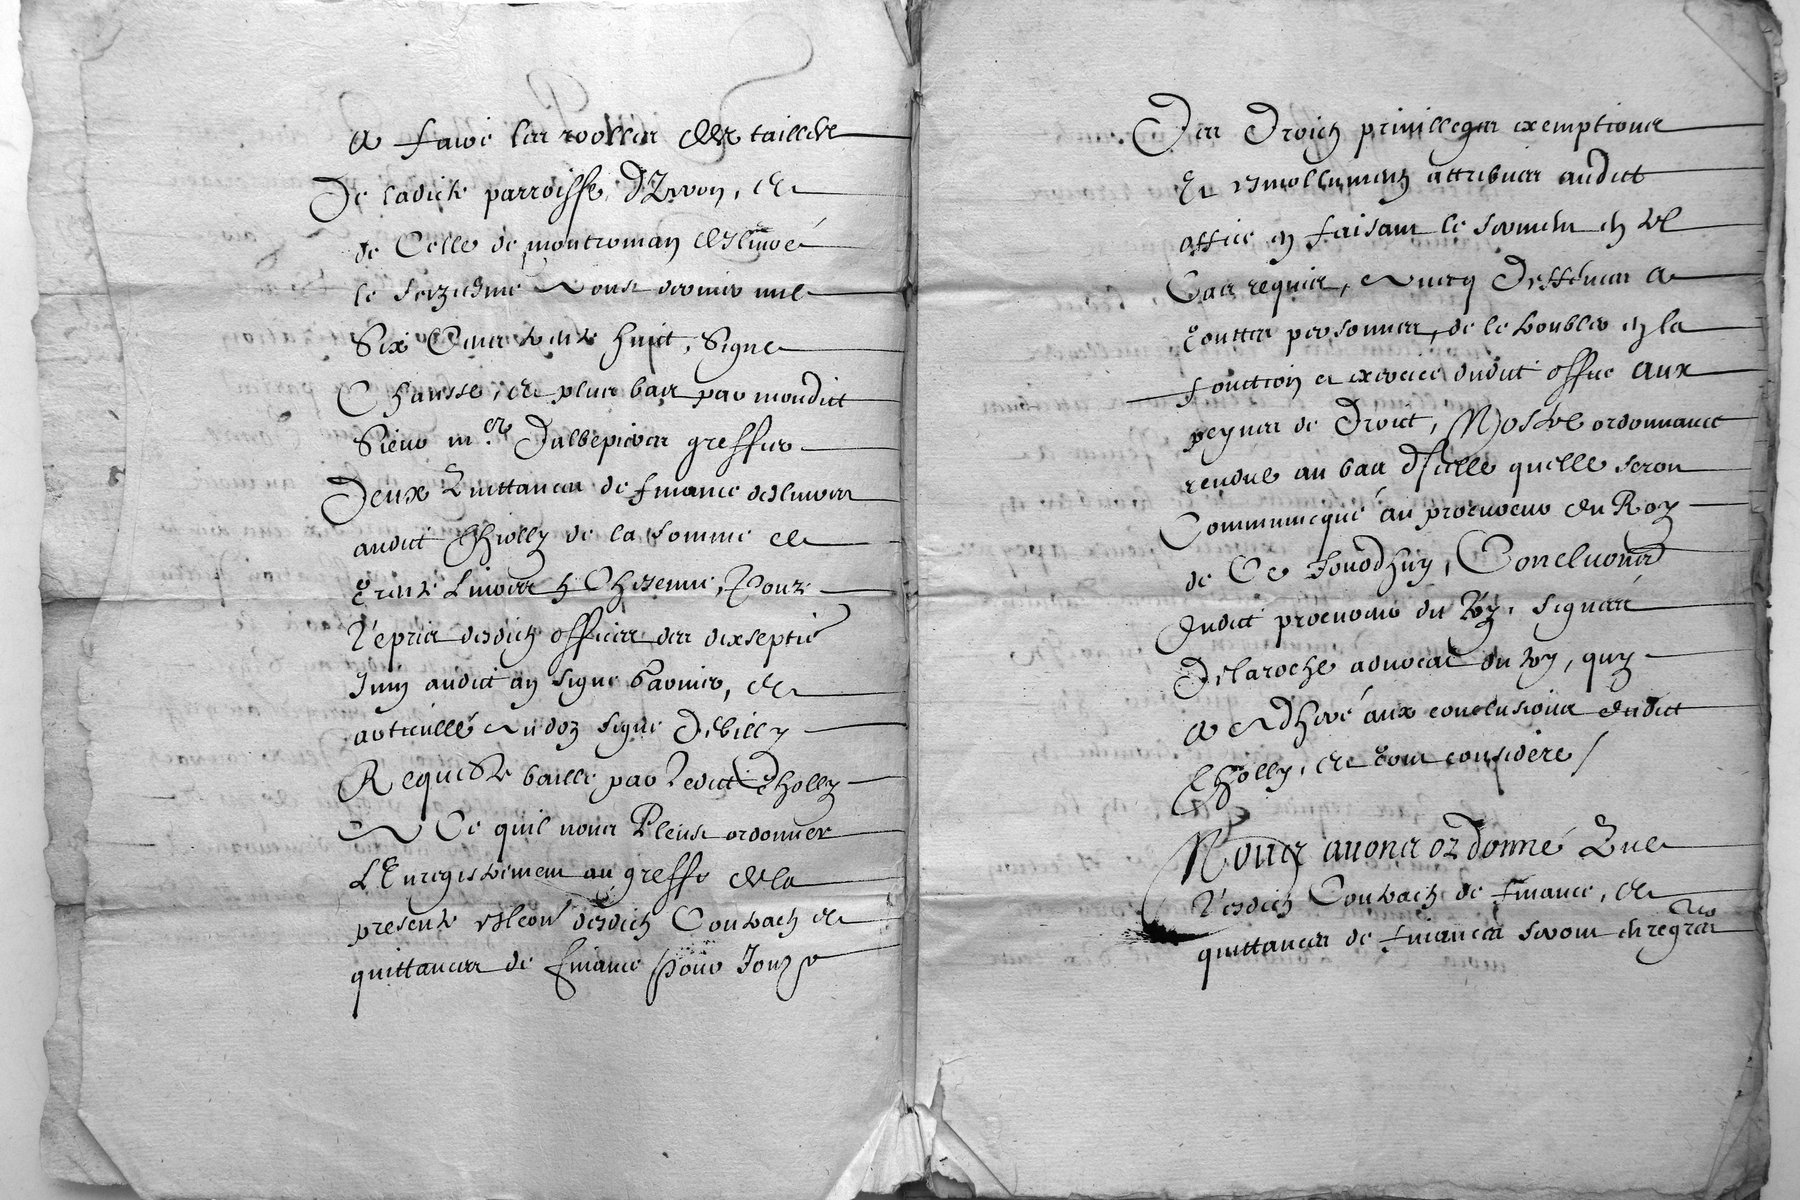 A faire les roolles des tailles
De ladicte parroisse d'Yvon, et
de Celle de montroman deslivré
le seiziesme Aoust dernier mil
Six Cens trente huict, Signe
Chausse, et plus bas par mondict
Sieur me Dalbepierre greffier
Deux Quittances de finance deslivrées
audict Cholly de la somme de
trente Livres chesenne, Pour
Lesprix desdictz offices des dixseptie
Juin audict an signe Garnier, et
au doz signe Debilly
Requeste baillé par Ledict Cholly
A Ce quil nous Pleust ordonner
L'Enregistrement au greffe de la
presente desdictz Contractz et
quittances de finance Pour Jouyr
Des Droictz privilleges exemptions
Et esmollumens attribues audict
office en faisant le serment en tel
Cas requis, Avecq deffences A
touttes personnes, de le troubler en la
fonction et exercice dudict office aux
peynes de Droict, Nostre ordonnance
rendue au bas d'icelle quelle seroit
Communicqué au procureur du Roy
de Ce Jourdhuy, Conclusions
dudict procureur du Roy, signées
Delaroche advocat du Roy, quy
A Adheré aux conclusions dudict
Cholly, et tout considere /
Nous avons ordonné Que
Lesdictz Contractz de finance, et
quittances de finances seront enregrez